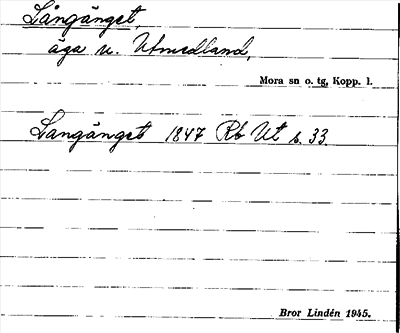 Långänget,
äga u. Utmedland,
Mora sn o. tg, Kopp. l.
Langänget 1847 Rb Ut s. 33.
Bror Lindén 1945.